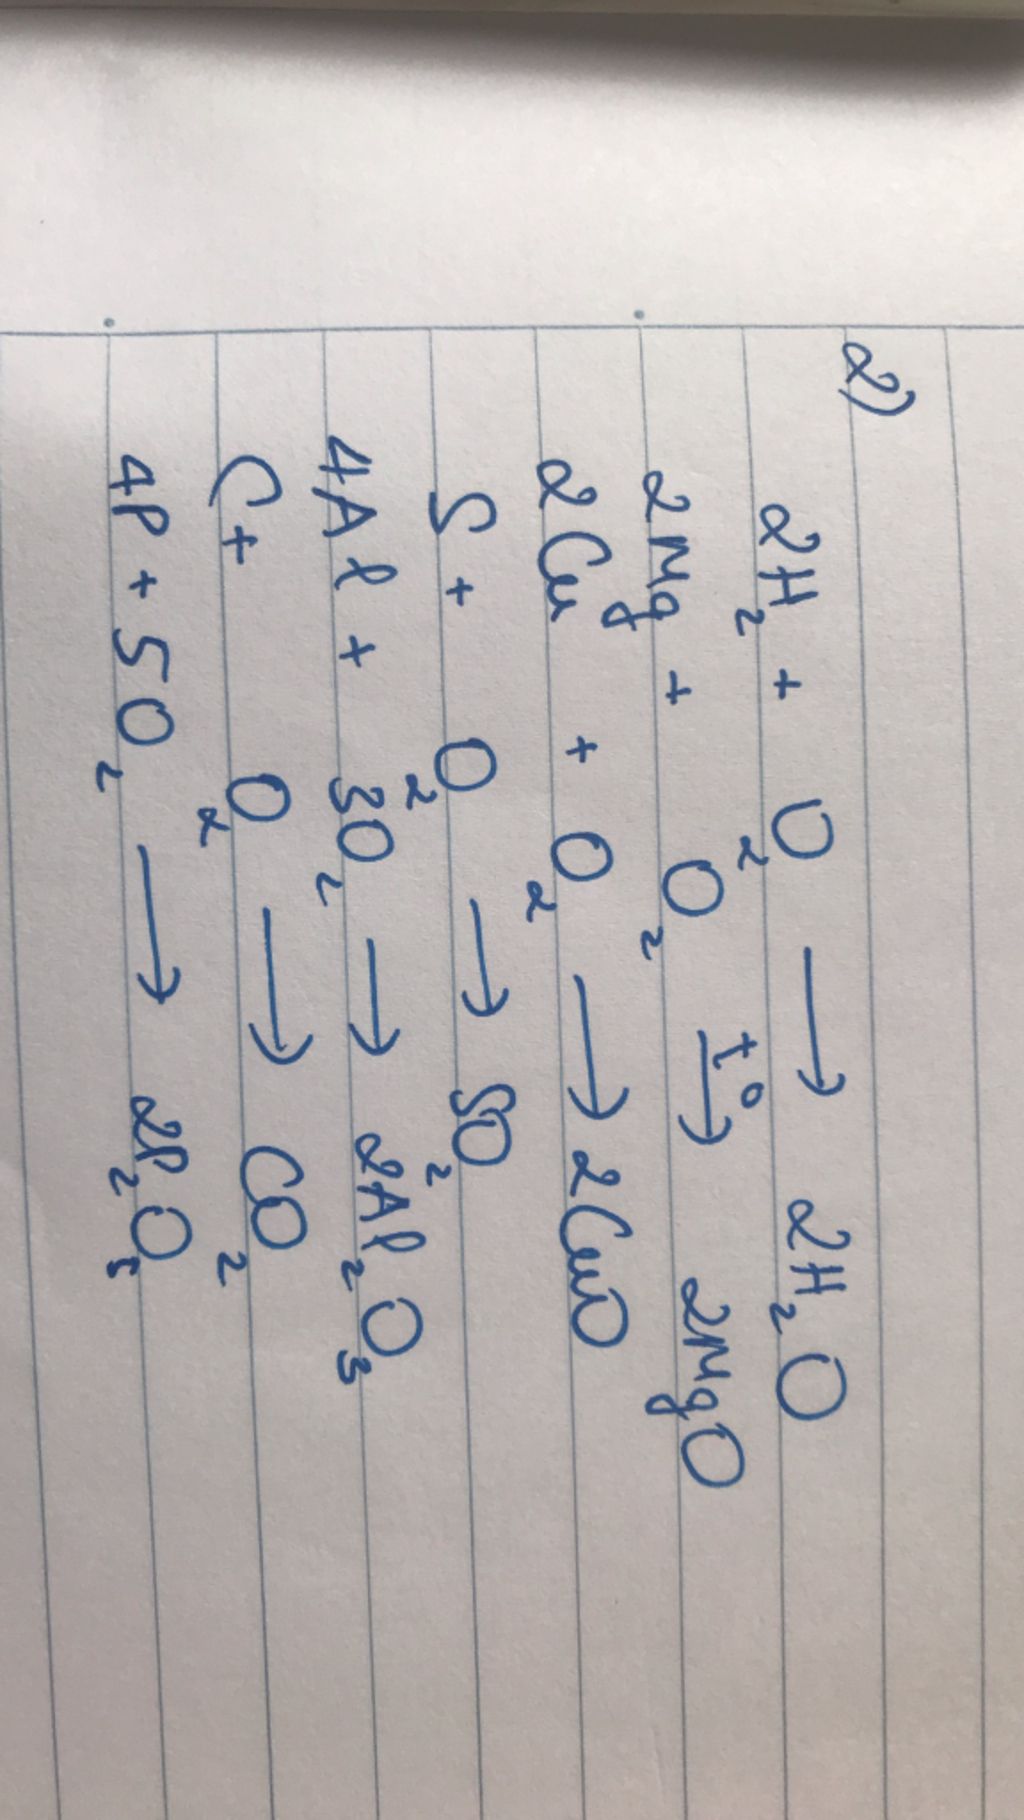 2)
2H₂ + O₂ → 2H₂O
2Mg + O₂ t° → 2MgO
2Cu + O₂ → 2CuO
S + O₂ → SO₂
4Al + 3O₂ → 2Al₂O₃
C + O₂ → CO₂
4P + 5O₂ → 2P₂O₅